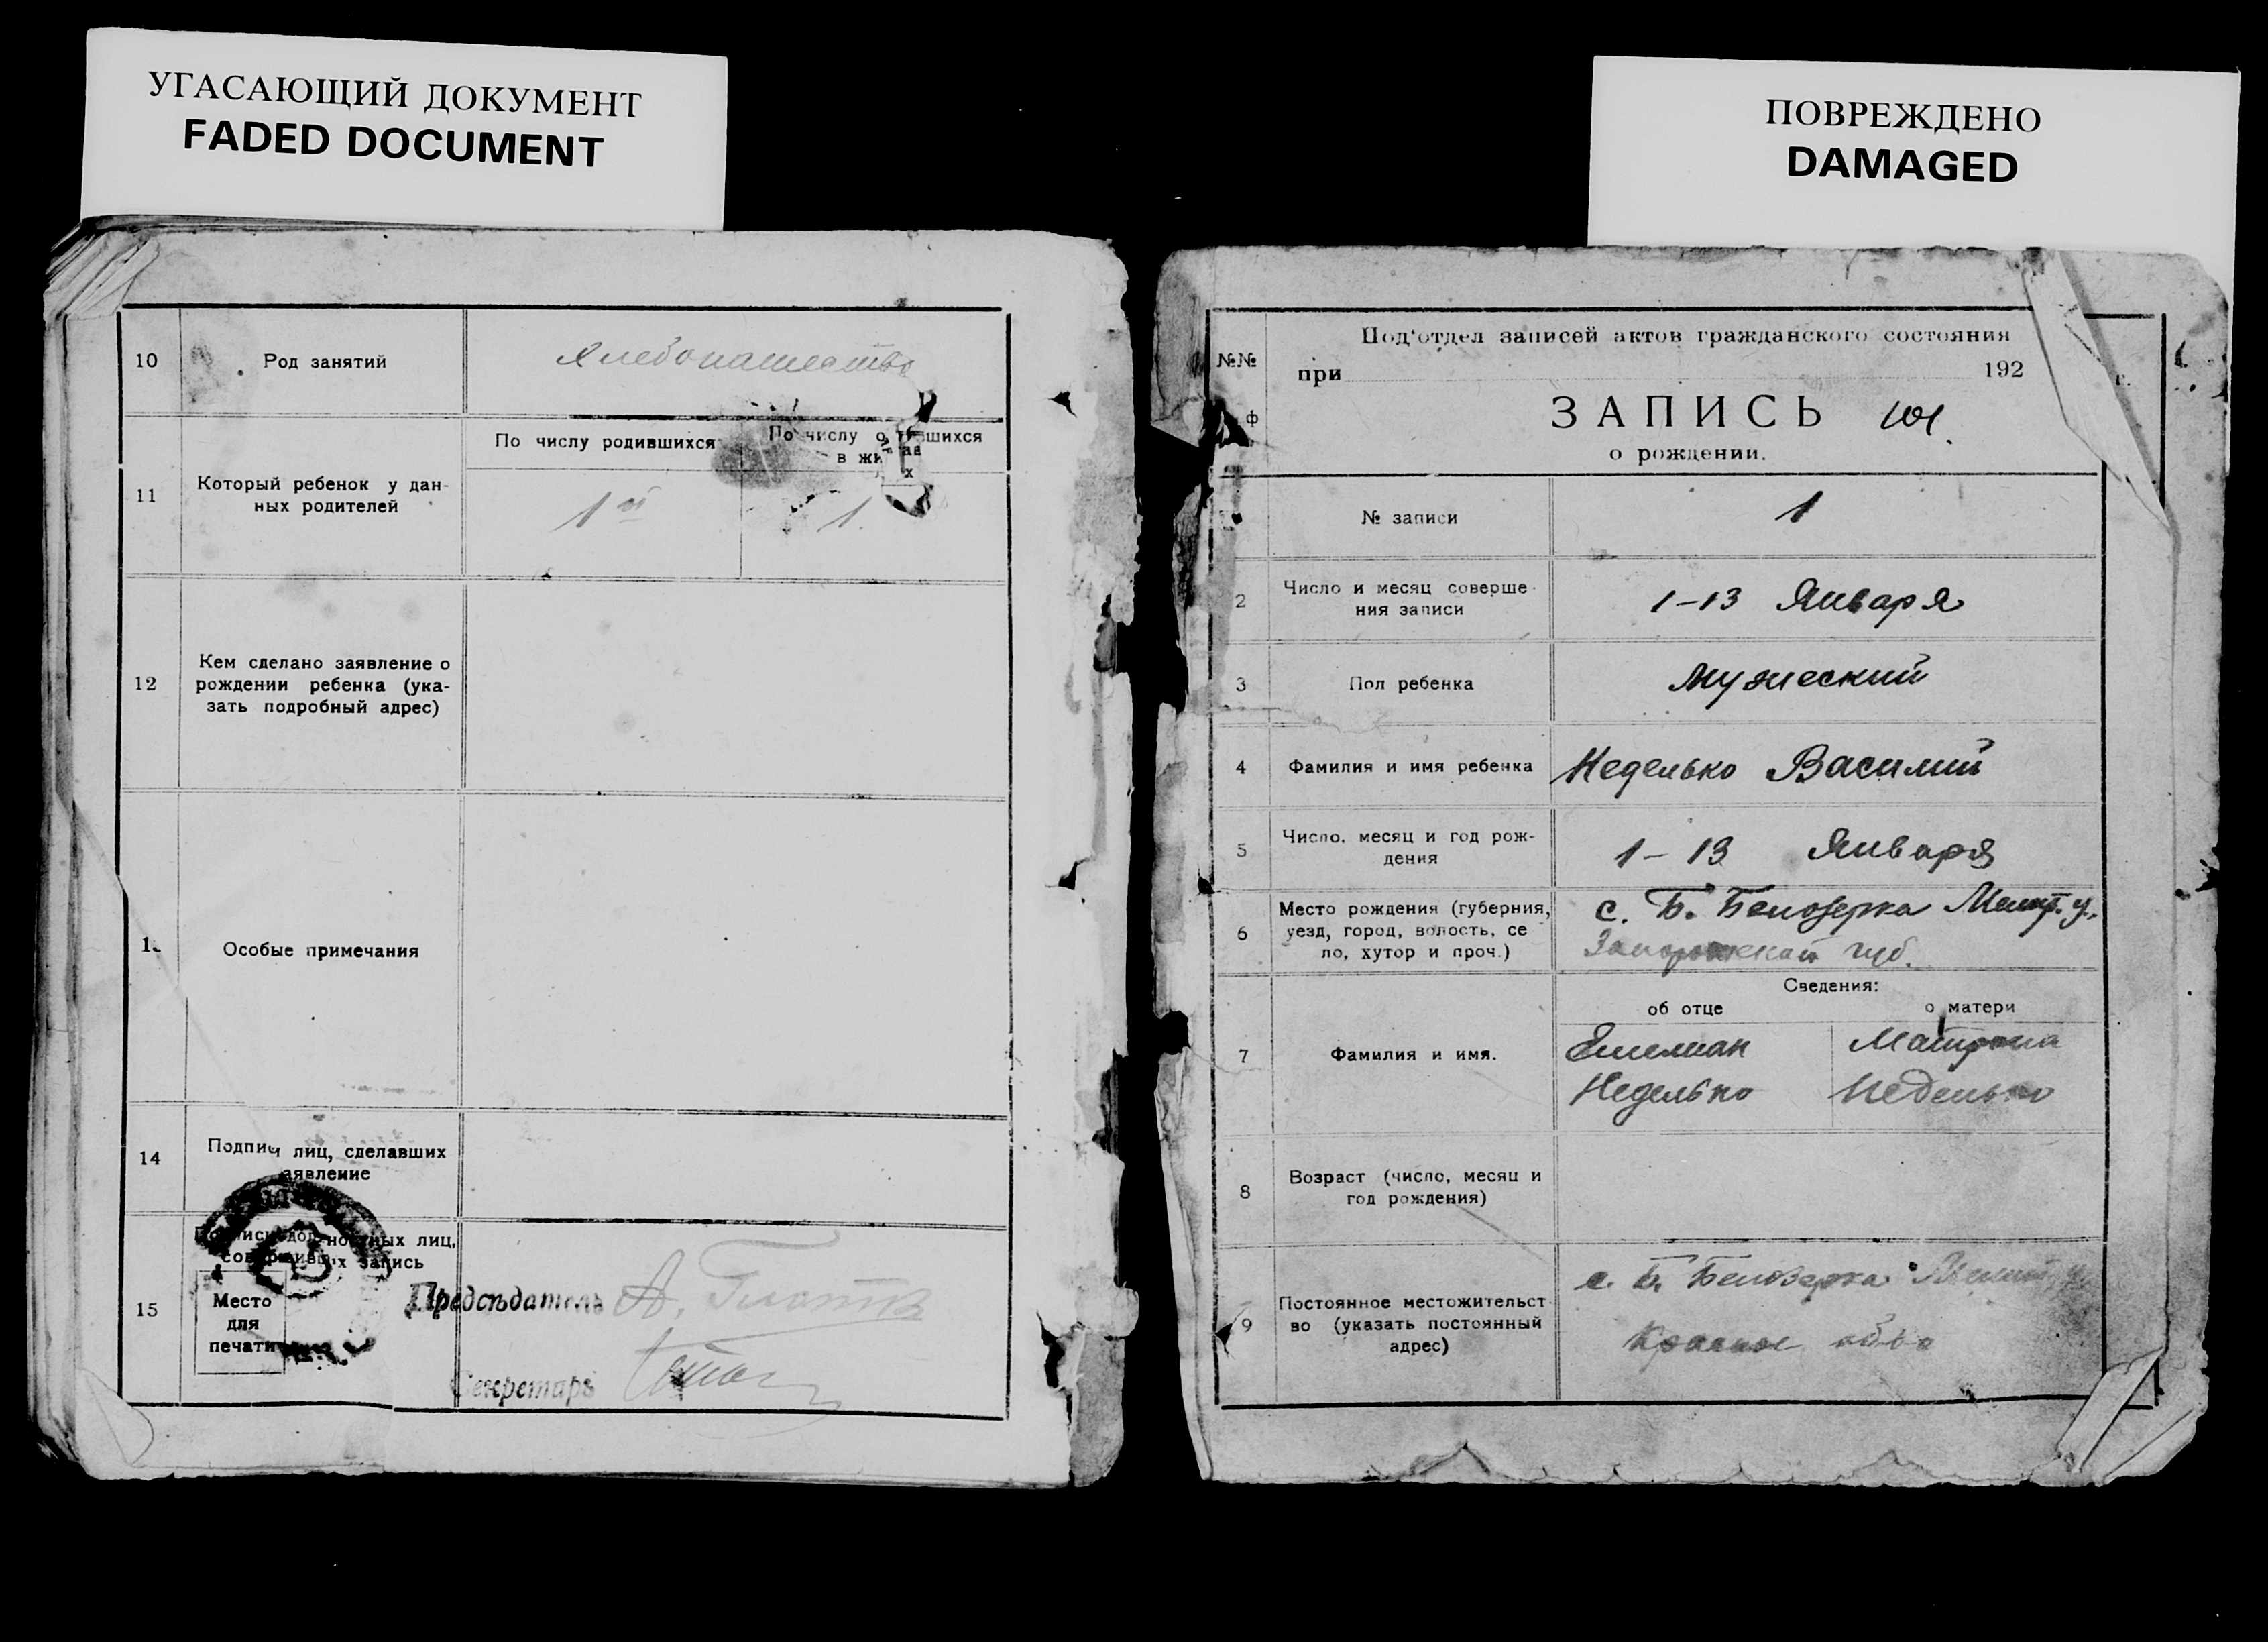 УГАСАЮЩИЙ ДОКУМЕНТ
FADED DOCUMENT
10
Род занятий
Хлебопашество
11
Который ребенок у дан-
ных родителей
По числу родившихся
1й
По числу о шихся
в жи
1.
12
Кем сделано заявление о
рождении ребенка (ука-
зать подробный адрес)
Особые примечания
14
Подписи лиц, сделавших
аявление
лиц,
запись
15
Место
для
печати
Председатель А.
Секретарь
ПОВРЕЖДЕНО
DAMAGED
№№
ф
Под'отдел записей актов гражданского состояния
при 192 г.
ЗАПИСЬ
о рождении.
№ записи
1
2
Число и месяц соверше-
ния записи
1-13 Января
3
Пол ребенка
Мужеский
4
Фамилия и имя ребенка
Неделько Василий
5
Число, месяц и год рож-
дения
1-13 Января
6
Место рождения (губерния,
уезд, город, волость, се
ло, хутор и проч.)
с. Б. Белозерка Мелит. у.
Запорожской губ.
Сведения:
об отце
о матери
7
Фамилия и имя.
Емелиан
Неделько
Матрона
Неделько
8
Возраст (число, месяц и
год рождения)
9
Постоянное местожительст-
во (указать постоянный
адрес)
с. Б. Белозерка Мелит. у.